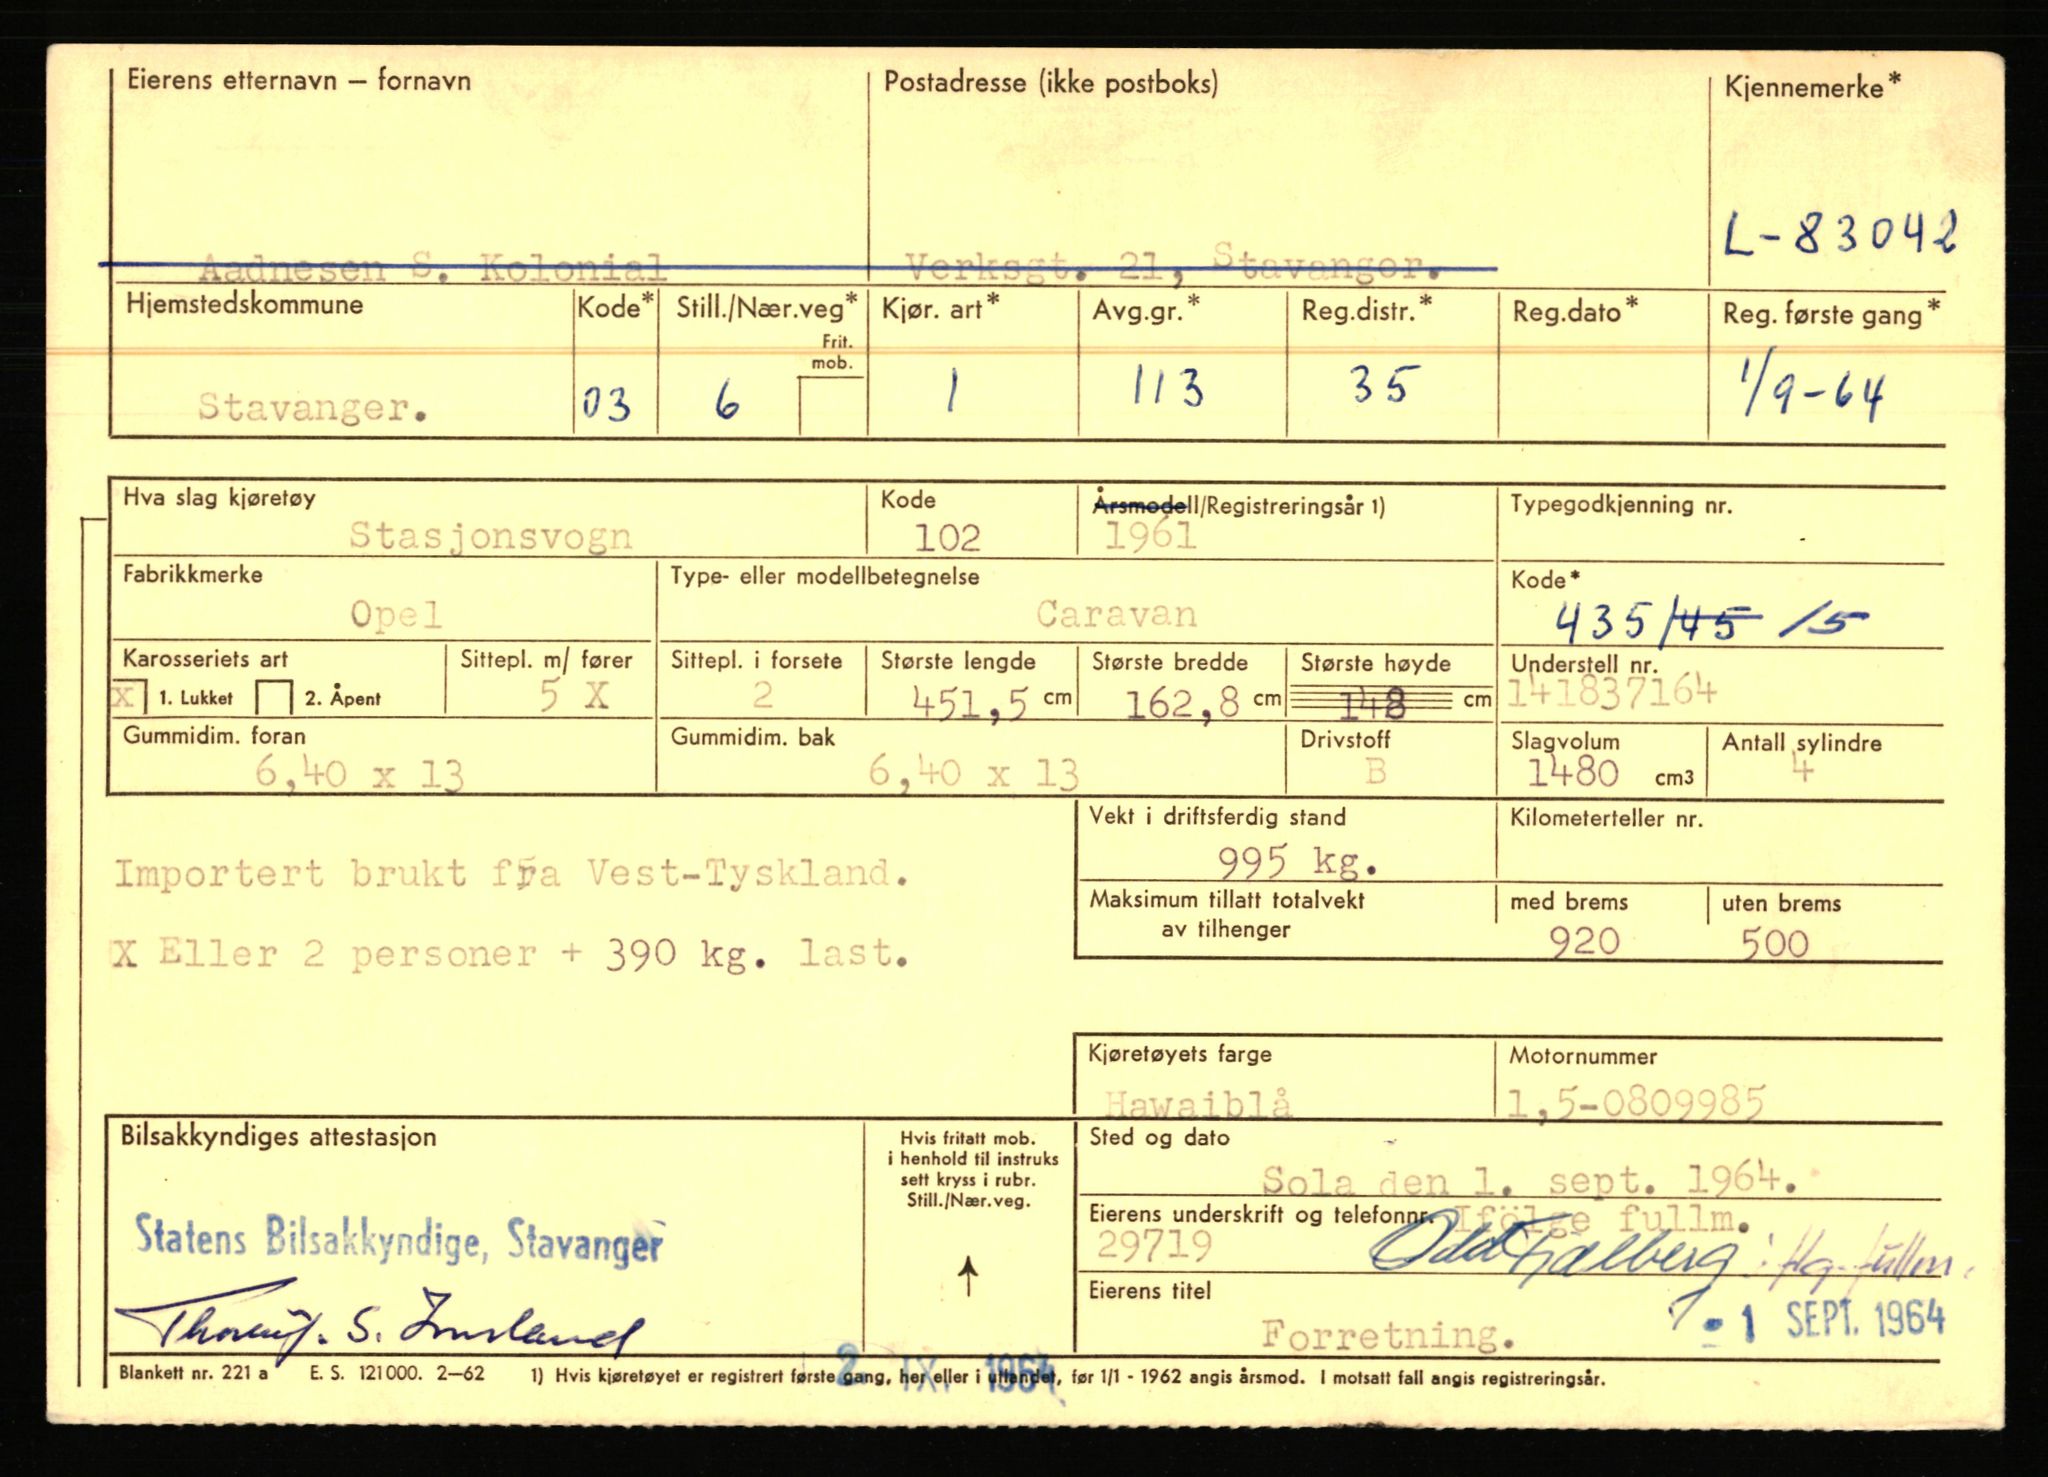 Eierens etternavn — fornavn Postadresse (ikke postboks) Kjennemerke*
L-83042
Aadnesen S. Kolonial Verksgt. 21, Stavanger.
Hjemstedskommune Kode* Still./Nær.veg* Kjør. art* Avg.gr.* Reg.distr.* Reg.dato* Reg. første gang*
Frit.
mob.
Stavanger. 03 6 1 113 35 1/9-64
Hva slag kjøretøy Kode Årsmodell/Registreringsår 1) Typegodkjenning nr.
Stasjonsvogn 102 1961
Fabrikkmerke Type- eller modellbetegnelse Kode*
Opel Caravan 435/45 /5
Karosseriets art Sittepl. m/ fører Sittepl. i forsete Største lengde Største bredde Største høyde Understell nr.
X 1. Lukket 2. Åpent 5 X 2 451,5 cm 162,8 cm 148 cm 141837164
Gummidim. foran Gummidim. bak Drivstoff Slagvolum Antall sylindre
6,40 x 13 6,40 x 13 B 1480 cm3 4
Vekt i driftsferdig stand Kilometerteller nr.
995 kg.
Importert brukt fra Vest-Tyskland.
Maksimum tillatt totalvekt med brems uten brems
av tilhenger 920 500
X Eller 2 personer + 390 kg. last.
Kjøretøyets farge Motornummer
Hawaiblå 1,5-0809985
Bilsakkyndiges attestasjon Hvis fritatt mob. Sted og dato
i henhold til instruks
sett kryss i rubr.
Still./Nær.veg.
Sola den 1. sept. 1964.
Eierens underskrift og telefonnr. Ifölge fullm.
Statens Bilsakkyndige, Stavanger
29719 Odd
Eierens titel
S.
Forretning. - 1 SEPT. 1964
2 IX 1964
Blankett nr. 221 a E. S. 121000. 2—62 1) Hvis kjøretøyet er registrert første gang, her eller i utlandet, før 1/1 - 1962 angis årsmod. I motsatt fall angis registreringsår.